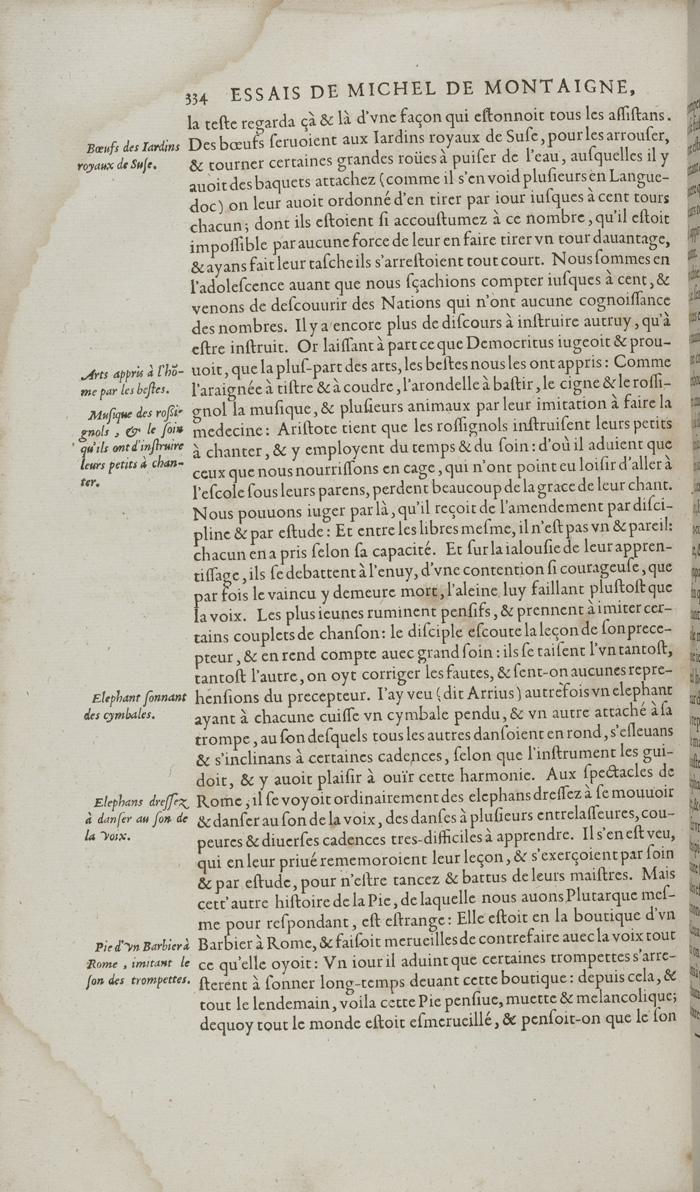 334 ESSAIS DE MICHEL DE MONTAIGNE,
la teſte regarda çà & là d'vne façon qui eſtonnoit tous les aſſiſtans.
Bœufs des Iardins
royaux de Suſe.
Des bœufs ſeruoient aux Iardins royaux de Suſe, pour les arrouſer,
& tourner certaines grandes roües à puiſer de l'eau, auſquelles il y
auoit des baquets attachez (comme il s'en void pluſieurs en Langue-
doc) on leur auoit ordonné d'en tirer par iour iuſques à cent tours
chacun; dont ils eſtoient ſi accouſtumez à ce nombre, qu'il eſtoit
impoſſible par aucune force de leur en faire tirer vn tour dauantage,
& ayans fait leur taſche ils s'arreſtoient tout court. Nous ſommes en
l'adoleſcence auant que nous ſçachions compter iuſques à cent, &
venons de deſcouurir des Nations qui n'ont aucune cognoiſſance
des nombres. Il y a encore plus de diſcours à inſtruire autruy, qu'à
eſtre inſtruit. Or laiſſant à part ce que Democritus iugeoit & prou-
Arts appris à l'hō-
me par les beſtes.
uoit, que la pluſ-part des arts, les beſtes nous les ont appris: Comme
l'araignée à tiſtre & à coudre, l'arondelle à baſtir, le cigne & le roſſi-
Muſique des roſſi-
gnols, & le ſoin
qu'ils ont d'inſtruire
leurs petits à chan-
ter.
gnol la muſique, & pluſieurs animaux par leur imitation à faire la
medecine: Ariſtote tient que les roſſignols inſtruiſent leurs petits
à chanter, & y employent du temps & du ſoin: d'où il aduient que
ceux que nous nourriſſons en cage, qui n'ont point eu loiſir d'aller à
l'eſcole ſous leurs parens, perdent beaucoup de la grace de leur chant.
Nous pouuons iuger par là, qu'il reçoit de l'amendement par diſci-
pline & par eſtude: Et entre les libres meſme, il n'eſt pas vn & pareil:
chacun en a pris ſelon ſa capacité. Et ſur la ialouſie de leur appren-
tiſſage, ils ſe debattent à l'enuy, d'vne contention ſi courageuſe, que
par fois le vaincu y demeure mort, l'aleine luy faillant pluſtoſt que
la voix. Les plus ieunes ruminent penſifs, & prennent à imiter cer-
tains couplets de chanſon: le diſciple eſcoute la leçon de ſon prece-
pteur, & en rend compte auec grand ſoin: ils ſe taiſent l'vn tantoſt,
tantoſt l'autre, on oyt corriger les fautes, & ſent-on aucunes repre-
Elephant ſonnant
des cymbales.
henſions du precepteur. I'ay veu (dit Arrius) autrefois vn elephant
ayant à chacune cuiſſe vn cymbale pendu, & vn autre attaché à ſa
trompe, au ſon deſquels tous les autres danſoient en rond, s'eſleuans
& s'inclinans à certaines cadences, ſelon que l'inſtrument les gui-
doit, & y auoit plaiſir à ouïr cette harmonie. Aux ſpectacles de
Elephans dreſſez
à danſer au ſon de
la voix.
Rome, il ſe voyoit ordinairement des elephans dreſſez à ſe mouuoir
& danſer au ſon de la voix, des danſes à pluſieurs entrelaſſeures, cou-
peures & diuerſes cadences tres-difficiles à apprendre. Il s'en eſt veu,
qui en leur priué rememoroient leur leçon, & s'exerçoient par ſoin
& par eſtude, pour n'eſtre tancez & battus de leurs maiſtres. Mais
cett' autre hiſtoire de la Pie, de laquelle nous auons Plutarque meſ-
me pour reſpondant, eſt eſtrange: Elle eſtoit en la boutique d'vn
Pie d'vn Barbier à
Rome, imitant le
ſon des trompettes.
Barbier à Rome, & faiſoit merueilles de contrefaire auec la voix tout
ce qu'elle oyoit: Vn iour il aduint que certaines trompettes s'arre-
ſterent à ſonner long-temps deuant cette boutique: depuis cela, &
tout le lendemain, voila cette Pie penſiue, muette & melancolique;
dequoy tout le monde eſtoit eſmerueillé, & penſoit-on que le ſon